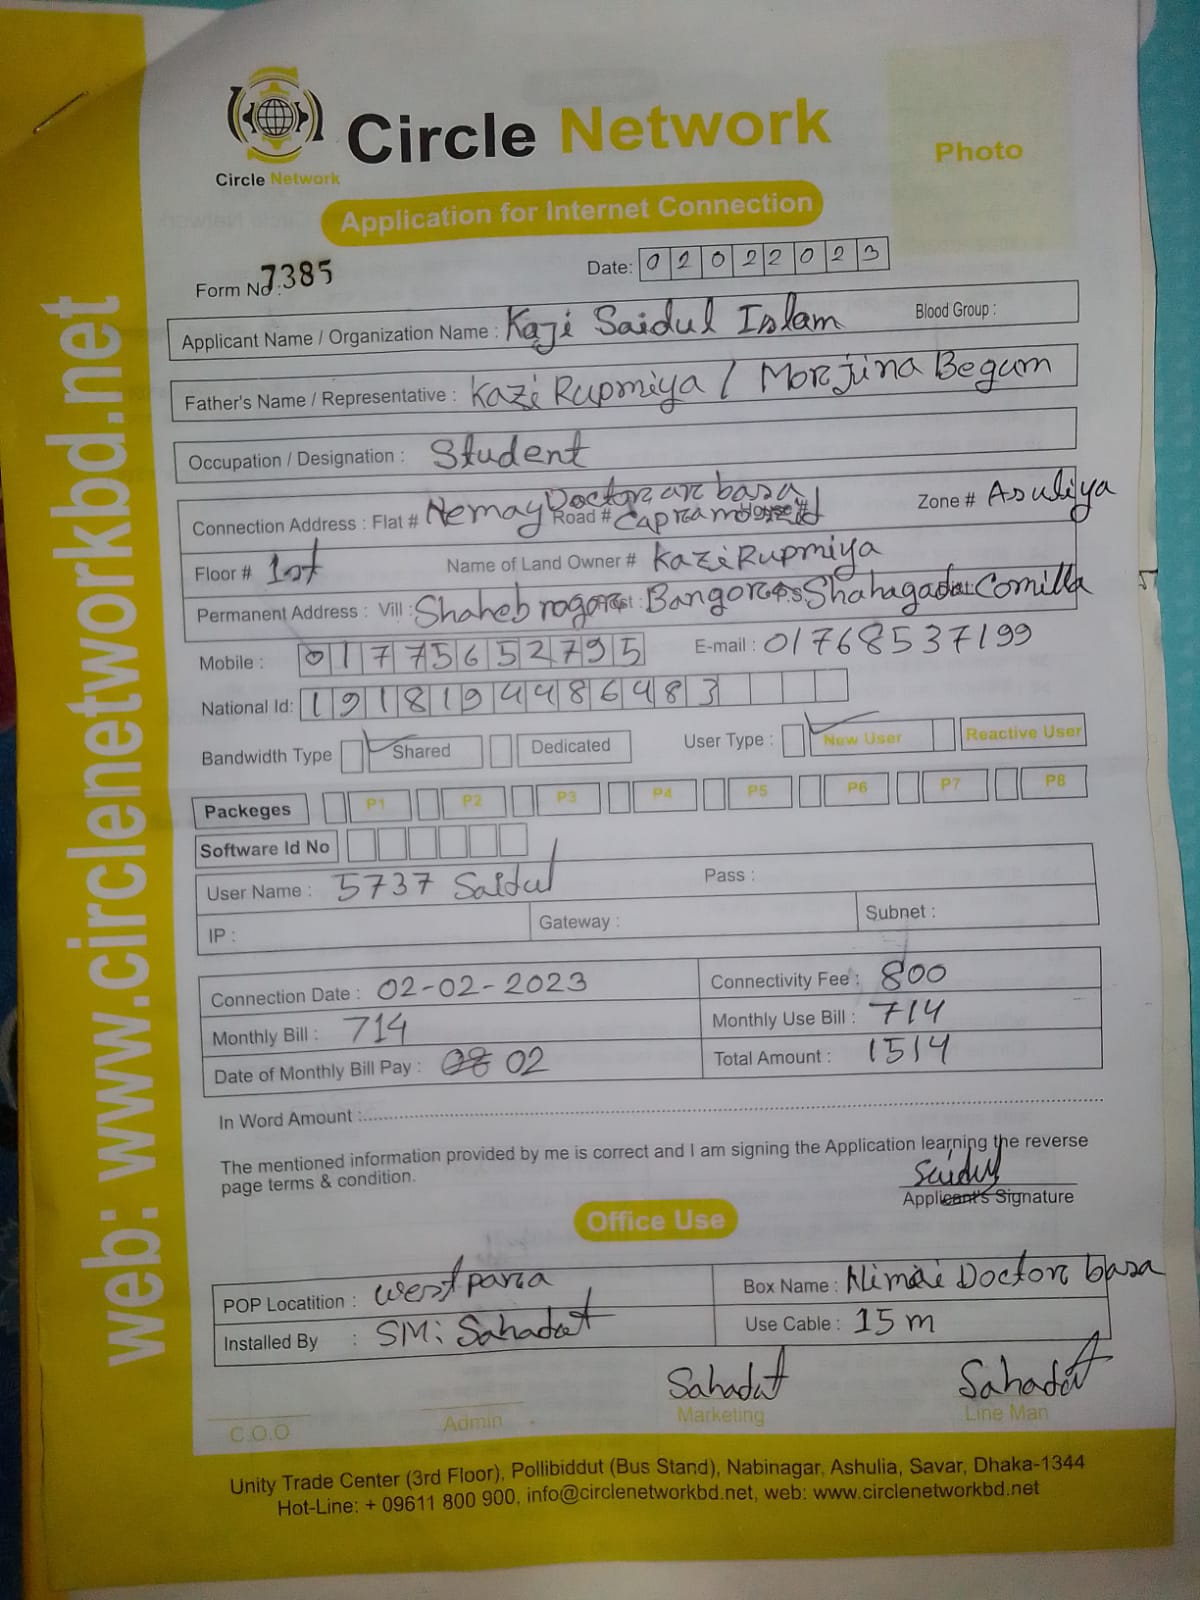 Circle Network
Circle Network
Photo
Application for Internet Connection
Form No : 7385
Date: 02022023
Applicant Name / Organization Name : Kazi Saidul Islam Blood Group :
Father's Name / Representative : Kazi Rupmiya / Morjina Begum
Occupation / Designation : Student
Connection Address : Flat # Nemay Doctorar basa Road # Zone # Asuliya
Floor # 1st Name of Land Owner # Kazi Rupmiya
Permanent Address : Vill : Bangora P.S Comilla
Mobile : 01775652795 E-mail : 01768537199
National Id: 1918194486483
Bandwidth Type Shared Dedicated User Type : New User Reactive User
Packeges P1 P2 P3 P4 P5 P6 P7 P8
Software Id No
User Name : 5737 Saidul Pass :
IP : Gateway : Subnet :
Connection Date : 02-02-2023 Connectivity Fee : 800
Monthly Bill : 714 Monthly Use Bill : 714
Date of Monthly Bill Pay : 02 Total Amount : 1514
In Word Amount :
The mentioned information provided by me is correct and I am signing the Application learning the reverse
page terms & condition.
Saidul
Applicant's Signature
Office Use
POP Locatition : west para Box Name : Nimai Doctor basa
Installed By : SM: Sahadat Use Cable : 15 m
Sahadat Sahadat
C.O.O Admin Marketing Line Man
Unity Trade Center (3rd Floor), Pollibiddut (Bus Stand), Nabinagar, Ashulia, Savar, Dhaka-1344
Hot-Line: + 09611 800 900, info@circlenetworkbd.net, web: www.circlenetworkbd.net
web: www.circlenetworkbd.net